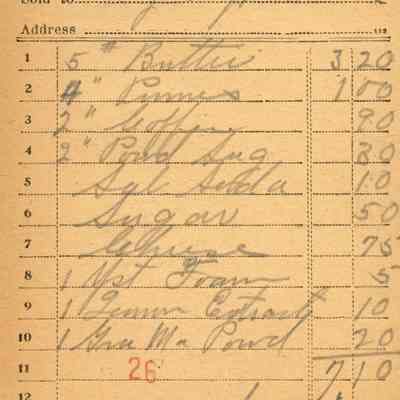 Sold to
Address
1 5 " Butter 3 20
2 4 " Prunes 1 00
3 2 " Coffee 90
4 2 " Powd Sug 30
5 Soda 10
6 Sugar 50
7 Cheese 75
8 1 Yst Foam 5
9 1 Lemon Extract 10
10 1 Powd 20
11 26 7 10
12